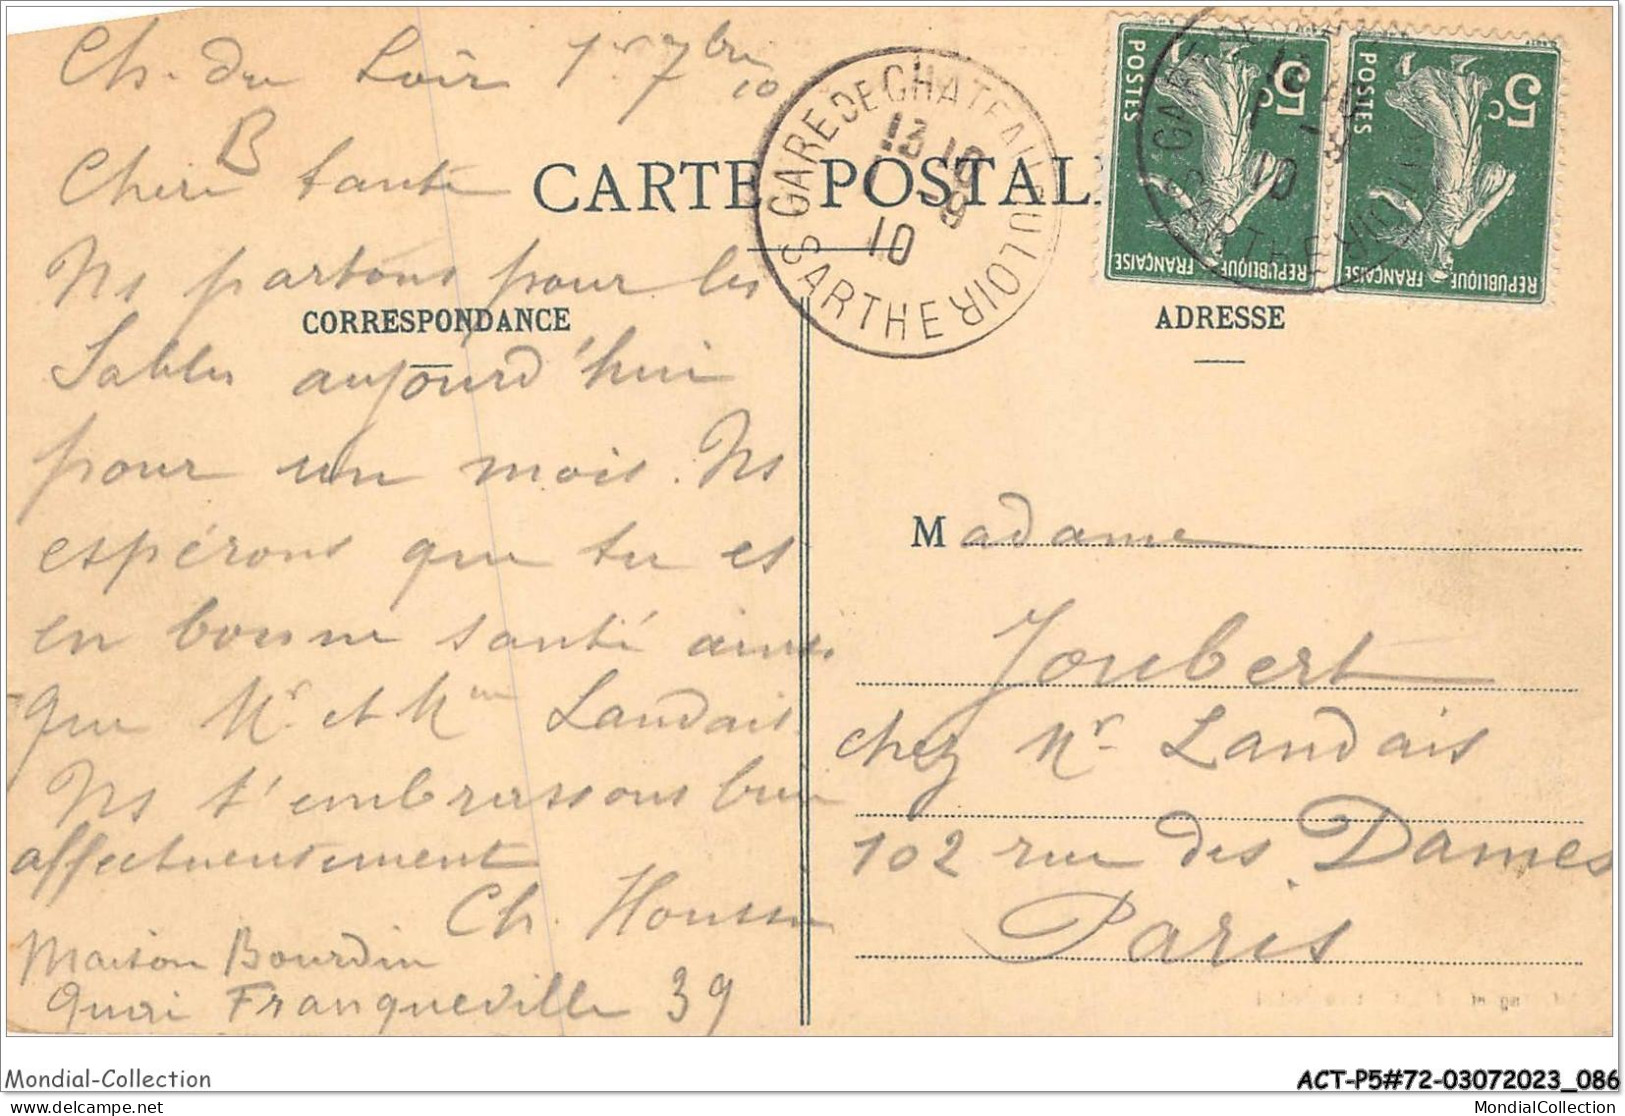 Ch. du Loir 1r 7bre 10
B
Chère tante
CARTE POSTALE
Ns partons pour les
CORRESPONDANCE
Sables aujourd'hui
pour un mois. Ns
espérons que tu es
en bonne santé ainsi
que Mr et Mme Landais.
Ns t'embrassons bien
affectueusement
Ch.
Maison Bourdin
Quai Franqueville 39
GARE DE CHATEAU DU LOIR
SARTHE
13 10
1 - 9
10
POSTES
5c
REPUBLIQUE FRANÇAISE
POSTES
5c
REPUBLIQUE FRANÇAISE
ADRESSE
Madame
Joubert
chez Mr Landais
102 rue des Dames
Paris
Mondial-Collection
ACT-P5#72-03072023_086
delcampe.net
MondialCollection